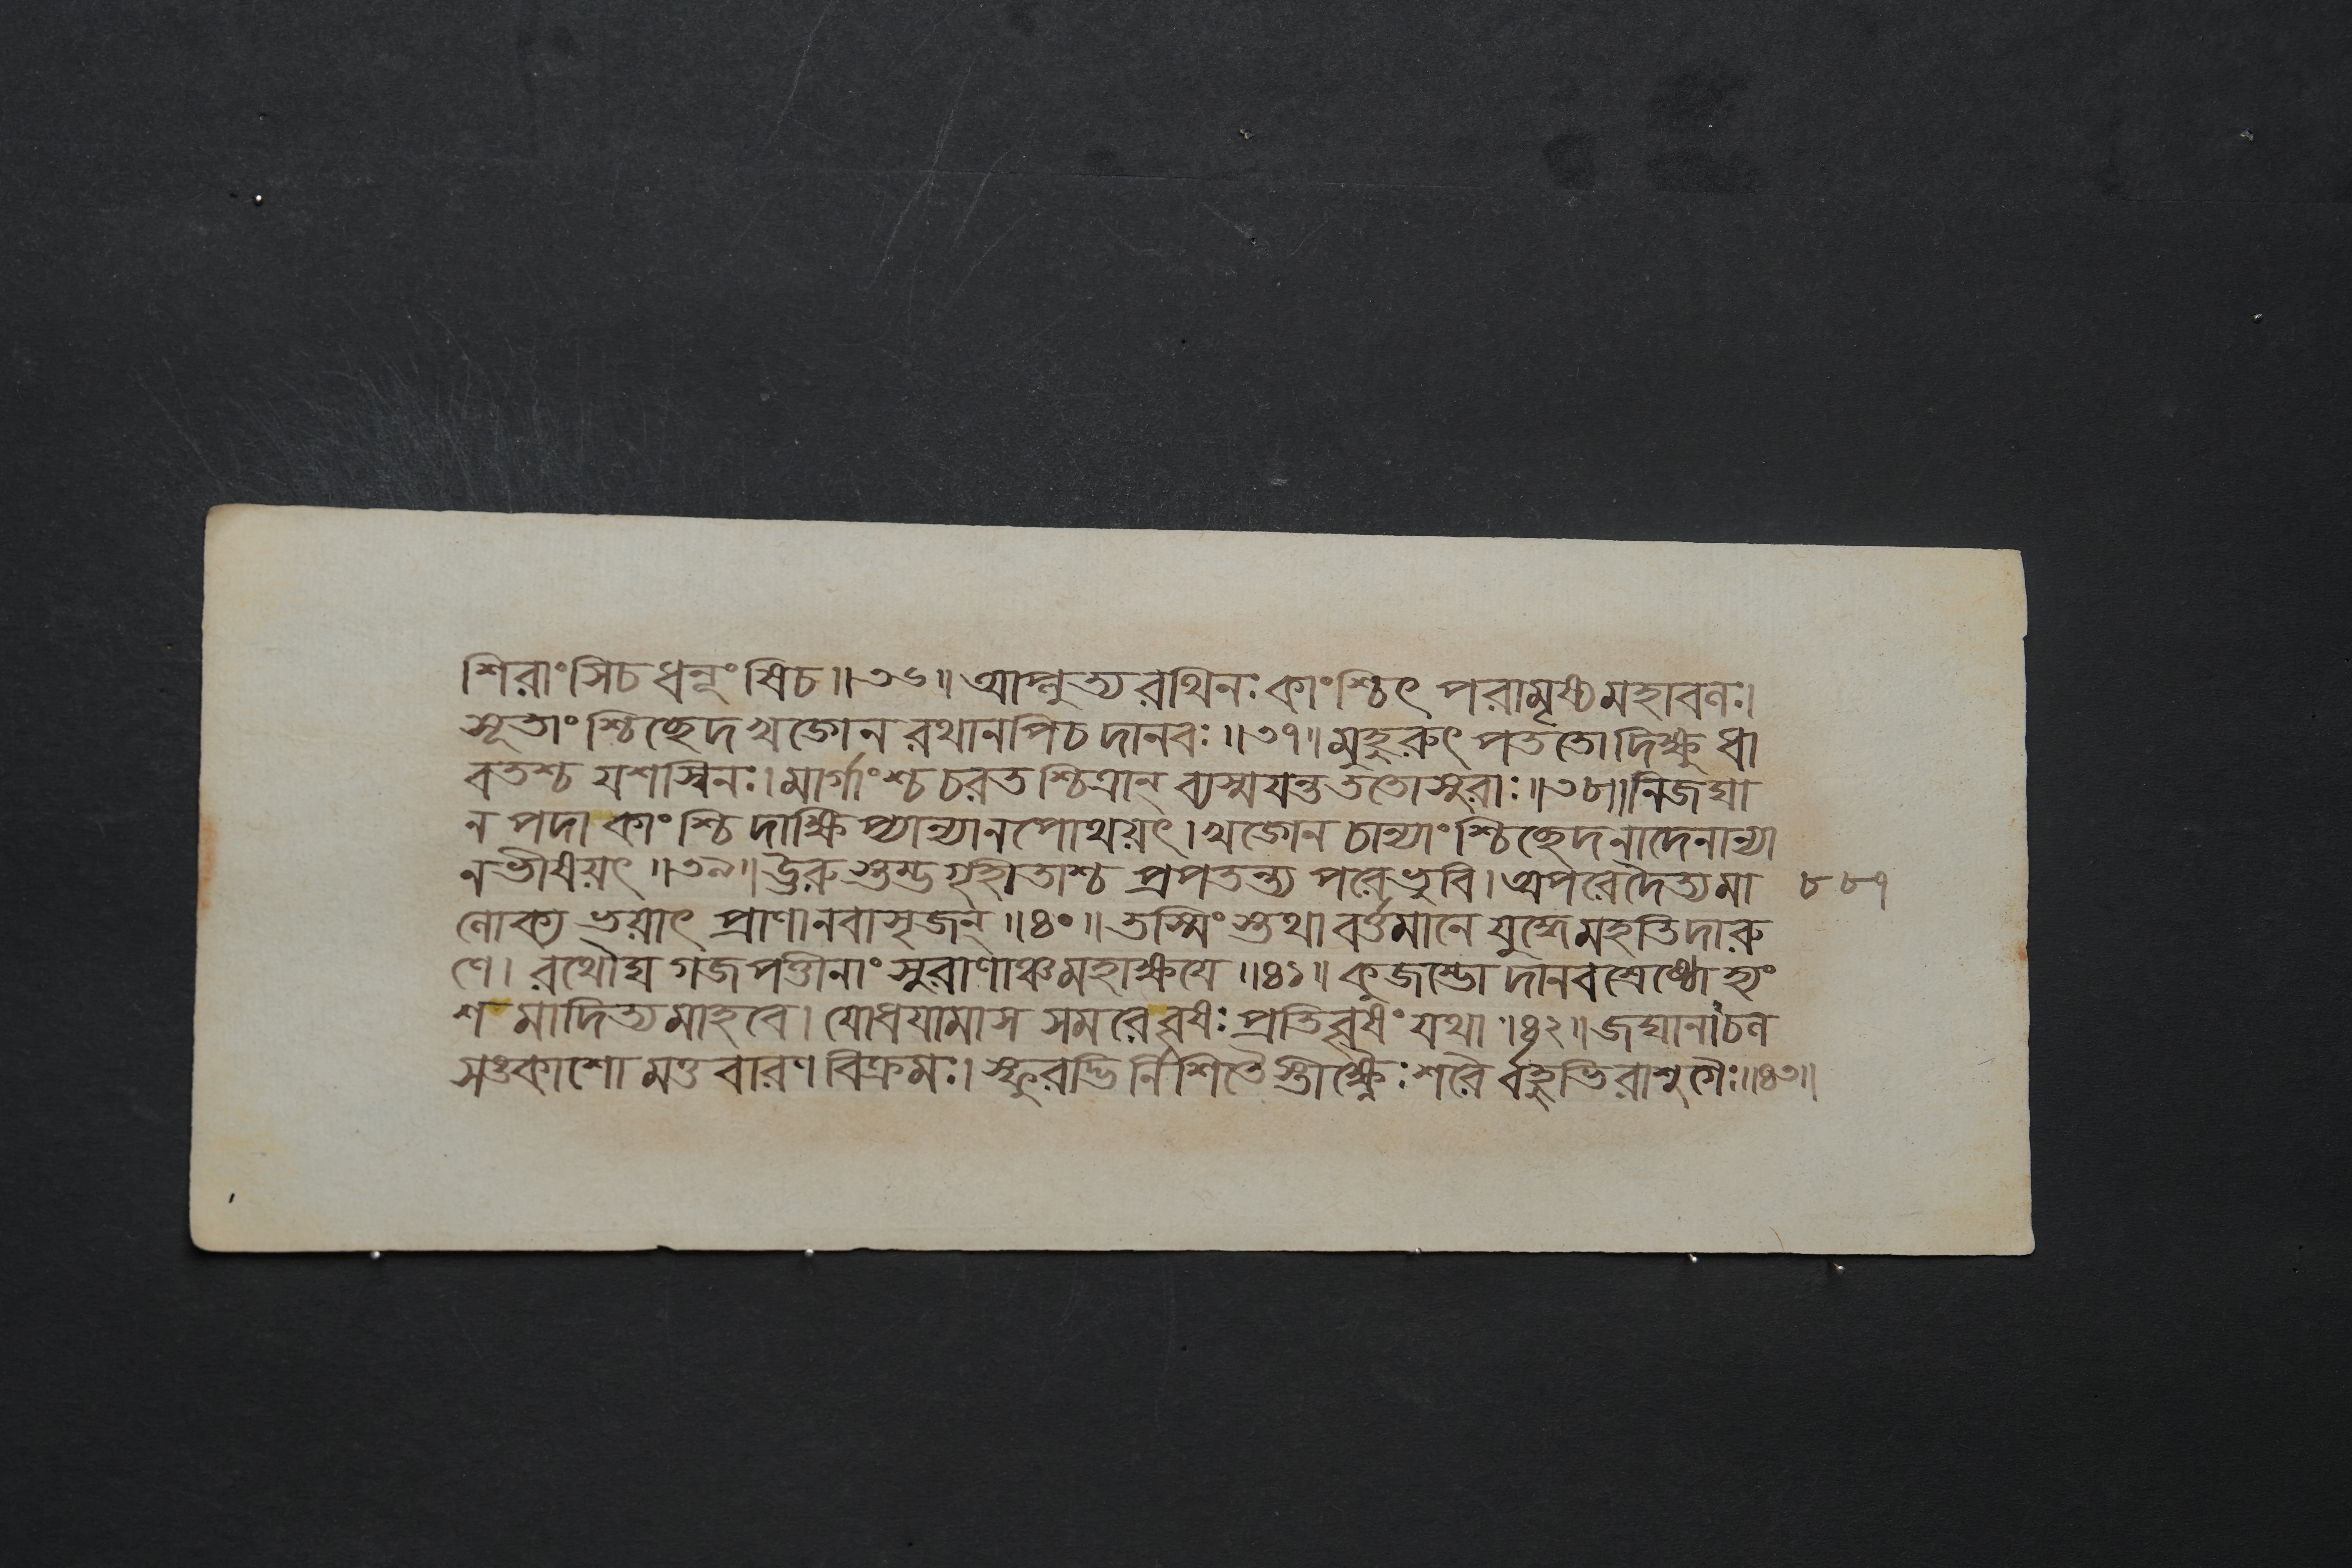 শিরাংসিচধনূংষিচ॥৩৬॥আপ্লুত্যরথিনঃকাংশ্চিৎপরামৃষ্যমহাবলঃ।
সূতাংশ্চিচ্ছেদখড়্গেনরথানপিচদানবঃ॥৩৭॥মুহুরুৎপততোদিক্ষুধা
বতশ্চযশস্বিনঃ।মার্গাংশ্চচরতশ্চিত্রান্ব্যস্ময়ন্তততোসুরাঃ॥৩৮॥নিজঘা
নপদাকাংশ্চিদাক্ষিপ্যান্যানপোথয়ৎ।খড়্গেনচান্যাংশ্চিচ্ছেদনাদেনান্যা
নভীষয়ৎ॥৩৯॥ঊরুস্তম্ভগৃহীতাশ্চপ্রপতন্ত্যপরেভুবি।অপরেদৈত্যমা ৮৮৭
লোক্যভয়াৎপ্রাণানবাসৃজন্॥৪০॥তস্মিংস্তথাবর্ত্তমানেযুদ্ধেমহতিদারু
ণে।রথৌঘগজপত্তীনাংসুরাণাঞ্চমহাক্ষয়ে॥৪১॥কুজম্ভোদানবশ্রেষ্ঠোহ্যং
শমাদিত্যমাহবে।যোধয়ামাসসমরেবৃষঃপ্রতিবৃষংযথা॥৪২॥জঘানাচল
সঙ্কাশোমত্তবারণবিক্রমঃ।স্ফুরদ্ভির্নিশিতৈস্তীক্ষ্ণৈঃশরৈর্বহুভিরাশুগৈঃ॥৪৩॥